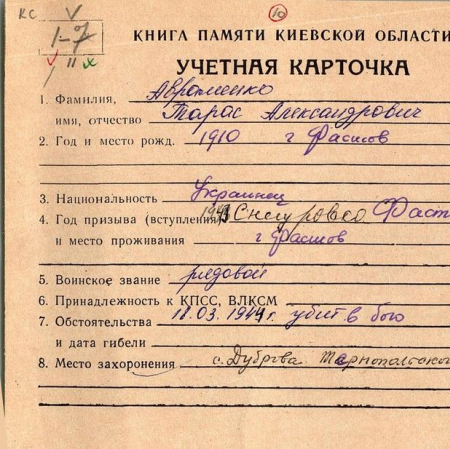 КС V 10
1-7
II x
КНИГА ПАМЯТИ КИЕВСКОЙ ОБЛАСТИ
УЧЕТНАЯ КАРТОЧКА
1. Фамилия, Авраменко
имя, отчество Тарас Александрович
2. Год и место рожд. 1910 г Фастов
3. Национальность Украинец
4. Год призыва (вступления) Фаст
и место проживания г Фастов
5. Воинское звание рядовой
6. Принадлежность к КПСС, ВЛКСМ
7. Обстоятельства 18.03.1944г. убит в бою
и дата гибели
8. Место захоронения с. Дуброва Тарнопольской